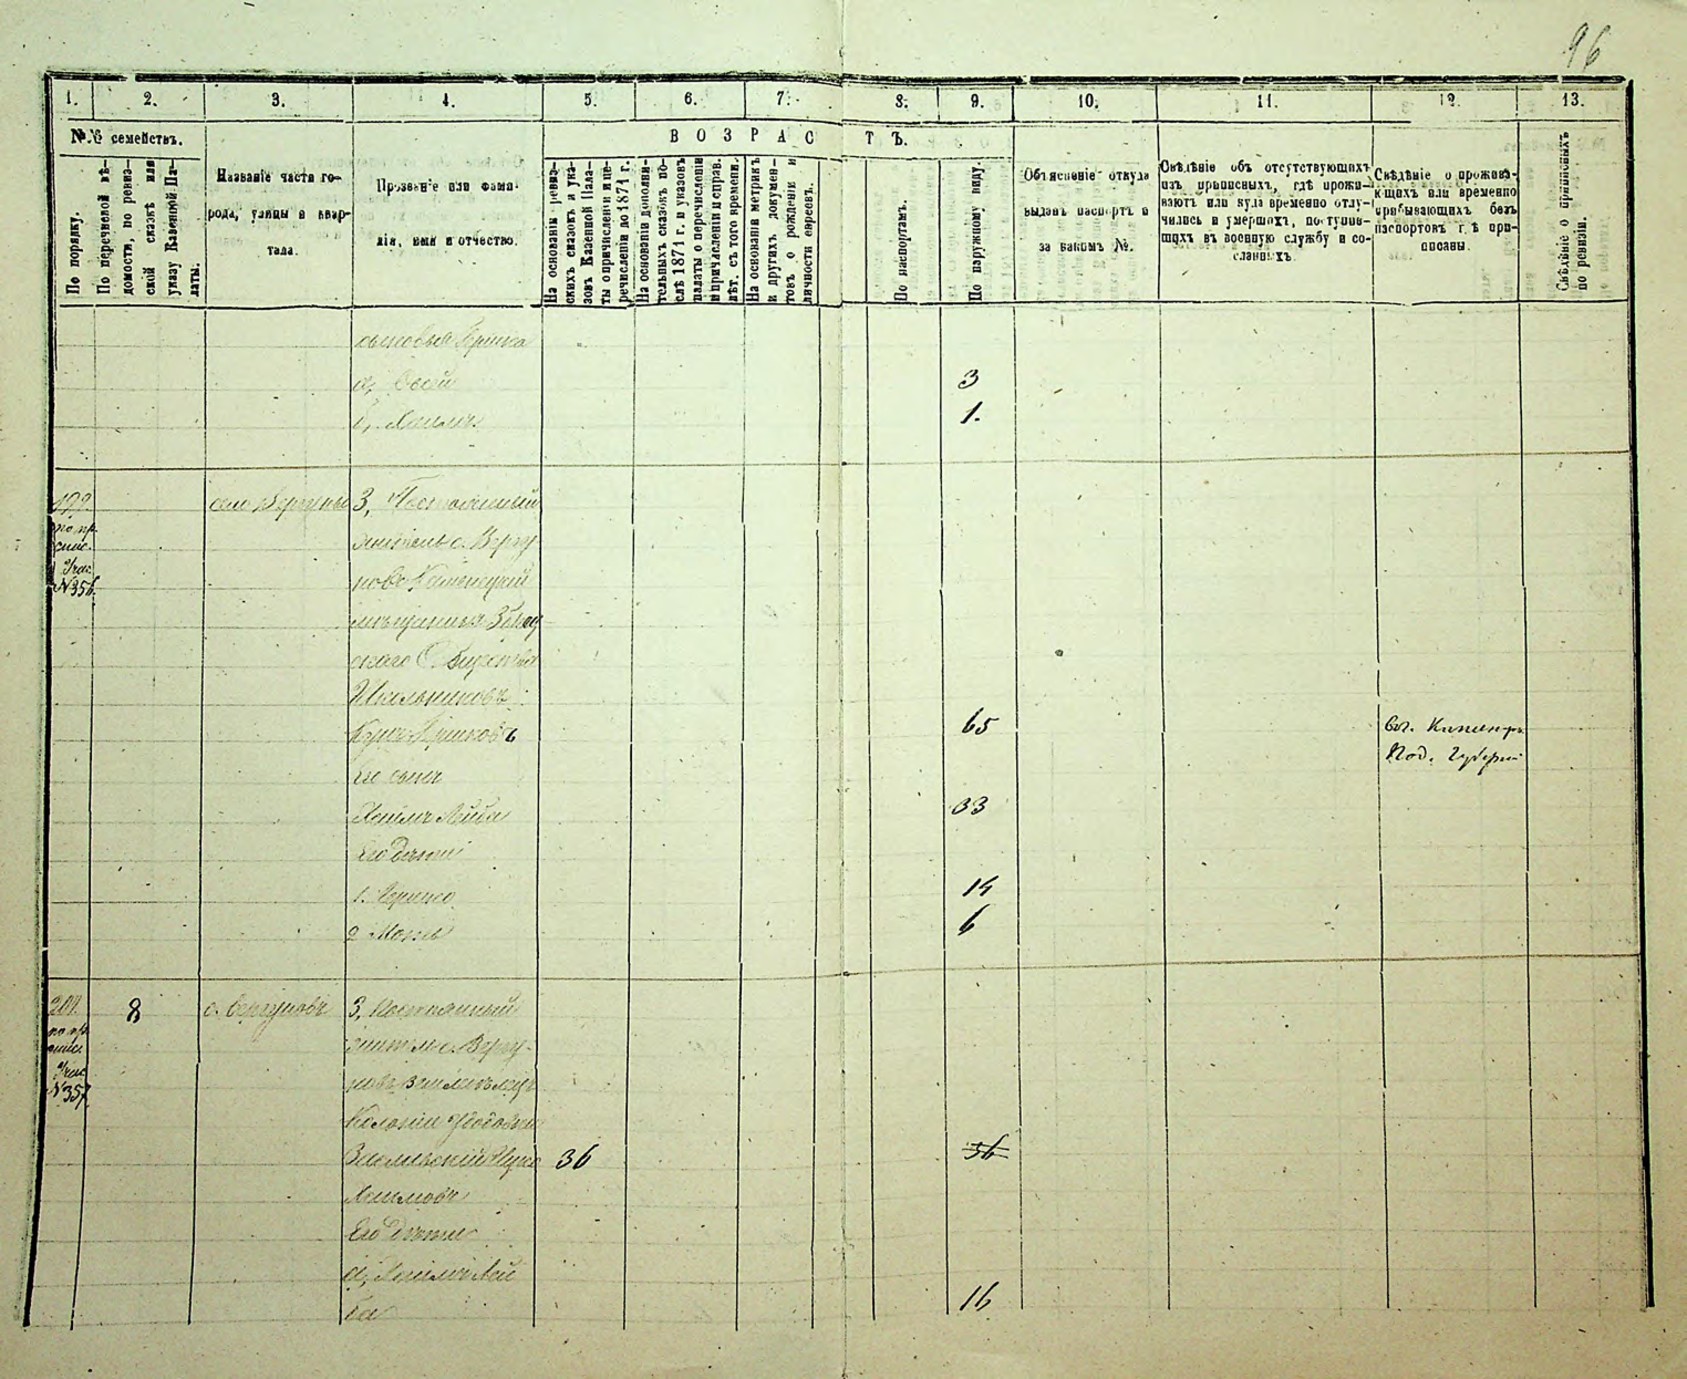 96
1. 2. 3. 4. 5. 6. 7. 8. 9. 10. 11. 12. 13.
№№ семействъ.
ВОЗРАСТЪ.
По порядку.
По перечневой вѣ-
домости, по ревиз-
ской сказкѣ или
указу Казенной Па-
латы.
Названіе части го-
рода, улицы и квар-
тала.
Прозваніе или фами-
лія, имя и отчество.
На основаніи ревиз-
скихъ сказокъ и ука-
зовъ Казенной Пала-
ты о причисленіи и пе-
речисленіи до 1871 г.
На основаніи дополни-
тельныхъ сказокъ по-
слѣ 1871 г. и указовъ
палаты о перечисленіи
и причисленіи и справ.
лѣт. съ того времени.
На основаніи метрикъ
и другихъ докумен-
товъ о рожденіи и
личности евреевъ.
По паспортамъ.
По наружному виду.
Объясненіе откуда
выданъ паспортъ и
за какимъ №.
Свѣдѣніе объ отсутствующихъ
изъ приписныхъ, гдѣ прожи-
ваютъ или куда временно отлу-
чились и умершихъ, поступив-
шихъ въ военную службу и со-
сланныхъ.
Свѣдѣніе о прожива-
ющихъ или временно
прибывающихъ безъ
паспортовъ гдѣ при-
писаны.
Свѣдѣніе о приписныхъ
по ревизіи.
сыновья Гершка
а, 3
б, Хаимъ 1.
199.
по пр.
спис.
Учас.
№356.
село Вергуны 3, Постоянный
житель с. Вергу-
новъ Каменецкій
мѣщанинъ
скаго Общества
Школьниковъ
65 въ. Каменцѣ
Под. Губерніи
Его сынъ
Хаимъ Лейба 33
Его дѣти
1. Гершко 14
2 6
200.
по пр.
спис.
Учас
№357.
8 с. Вергуновъ 3, Постоянный
житель с. Вергу-
новъ
Колоніи
36 36
Хаимовъ
Его дѣти
а, Хаимъ Лей
ба 16